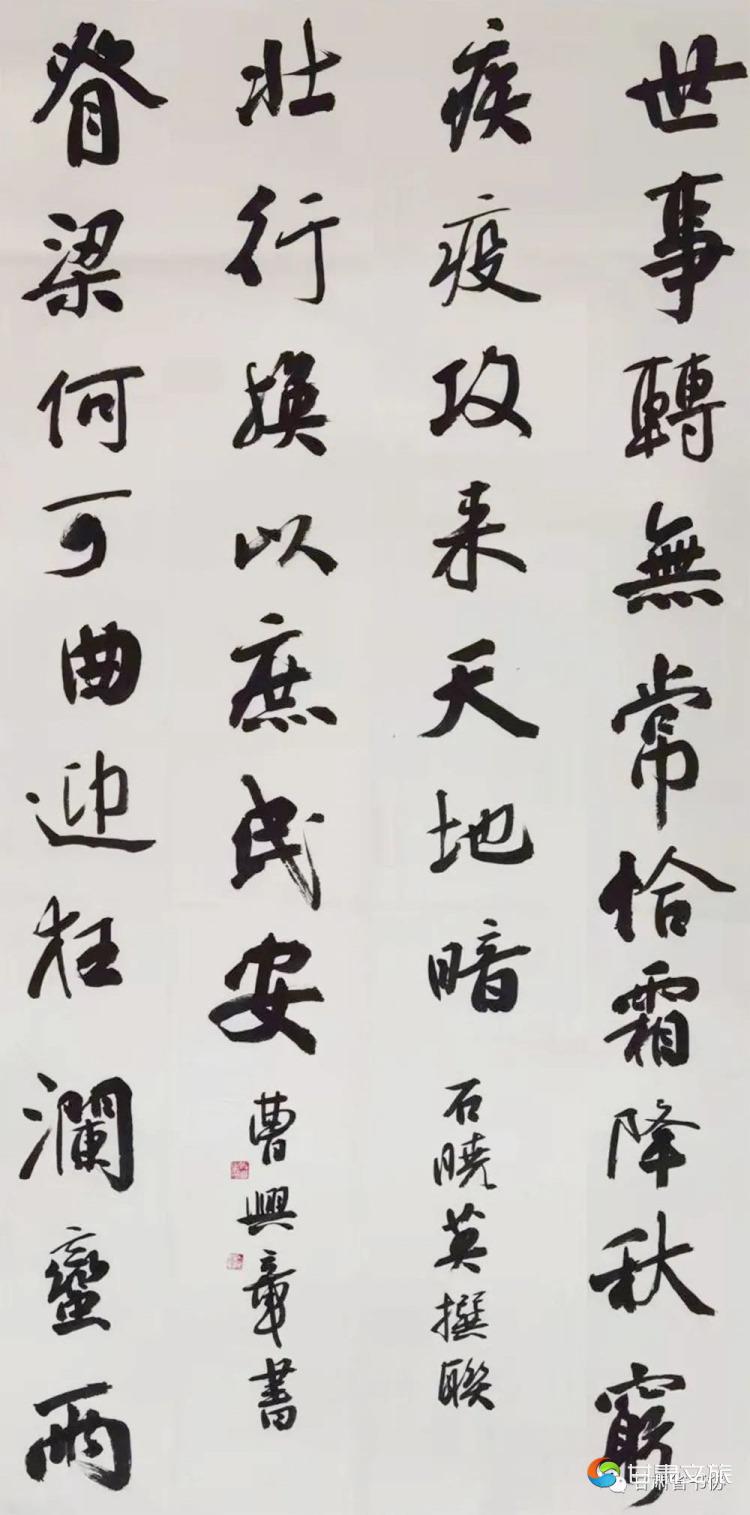 世事轉無常恰霜降秋窮
疾疫攻来天地暗
石曉英撰聯
脊梁何可曲迎狂瀾蠻雨
壯行換以庶民安
曹興章書
甘肃文旅
甘肃省书协